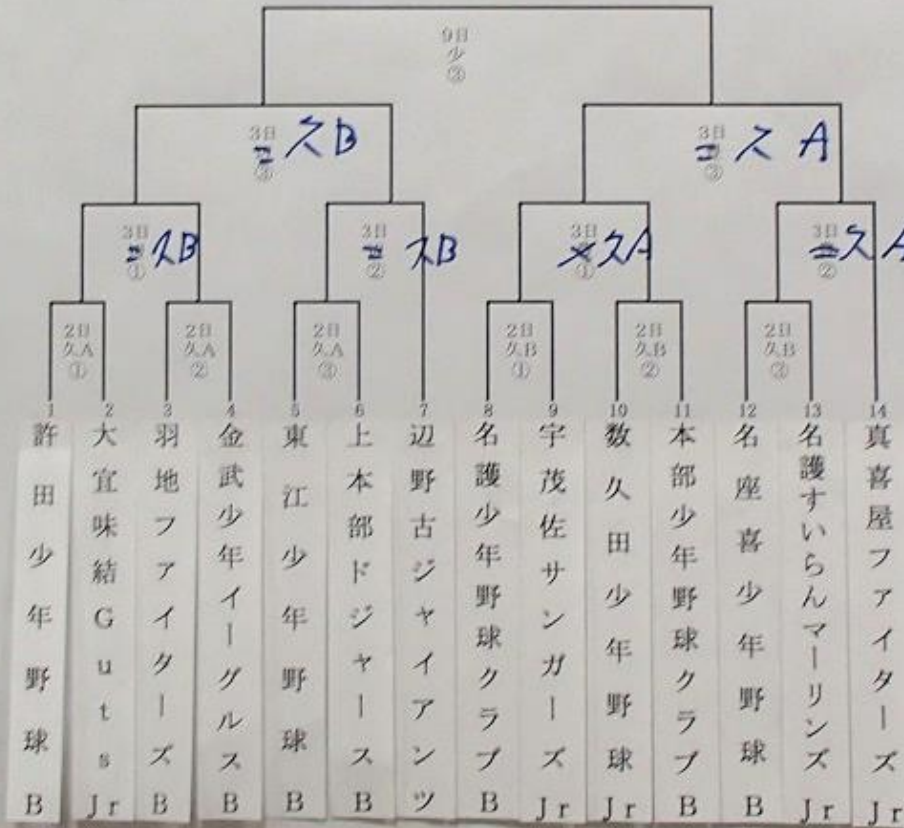 9日
少
③
3日
③
久B
3日
③
久A
3日
①
久B
3日
②
久B
3日
①
久A
3日
②
久A
2日
久A
①
2日
久A
②
2日
久A
③
2日
久B
①
2日
久B
②
2日
久B
③
1
許田少年野球B
2
大宜味結Guts Jr
3
羽地ファイターズB
4
金武少年イーグルスB
5
東江少年野球B
6
上本部ドジャースB
7
辺野古ジャイアンツ
8
名護少年野球クラブB
9
宇茂佐サンガーズJr
10
数久田少年野球Jr
11
本部少年野球クラブB
12
名座喜少年野球B
13
名護すいらんマーリンズJr
14
真喜屋ファイターズJr